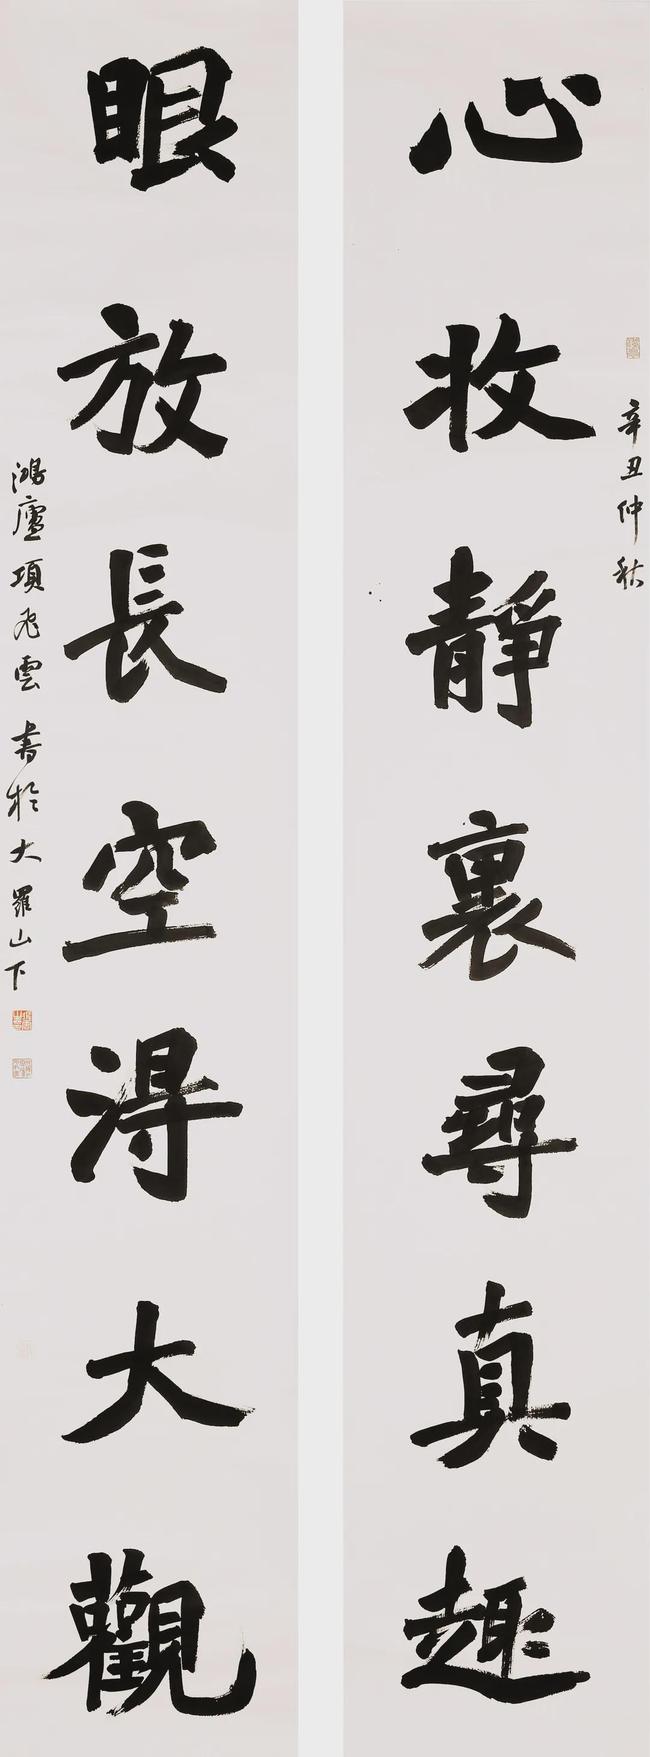 辛丑仲秋
心收靜裏尋真趣
眼放長空得大觀
鴻廬項飛雲書於大羅山下